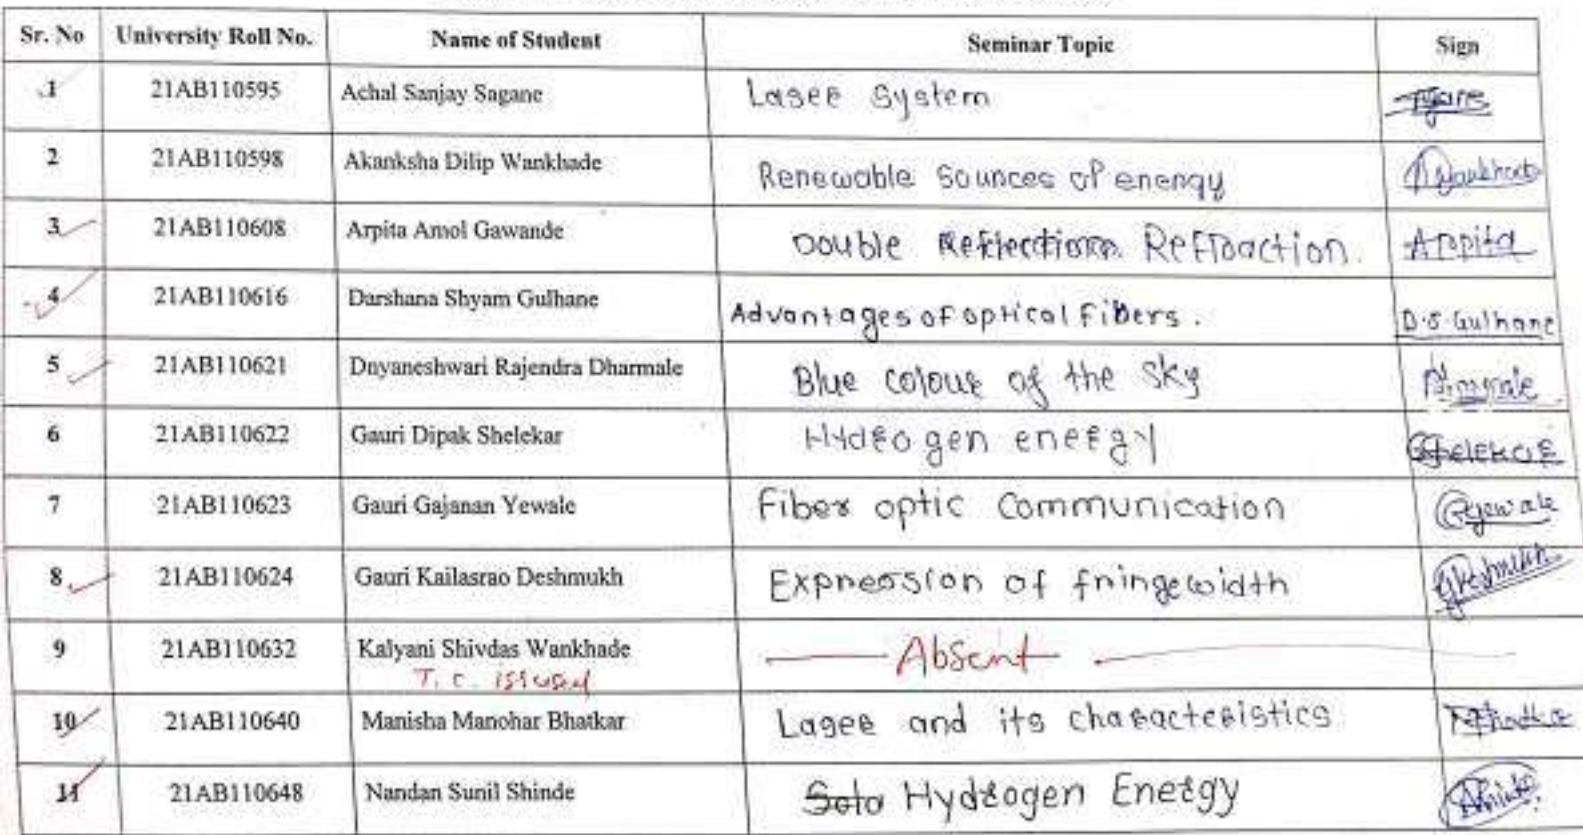 Sr. No University Roll No. Name of Student Seminar Topic Sign
1 21AB110595 Achal Sanjay Sagane Laser System
2 21AB110598 Akanksha Dilip Wankhade Renewable Sources of energy Wankhade
3 21AB110608 Arpita Amol Gawande Double Reflection Refraction. Arpita
4 21AB110616 Darshana Shyam Gulhane Advantages of optical Fibers. D.S Gulhane
5 21AB110621 Dnyaneshwari Rajendra Dharmale Blue colour of the Sky
6 21AB110622 Gauri Dipak Shelekar Hydrogen energy
7 21AB110623 Gauri Gajanan Yewale Fiber optic Communication Gyewale
8 21AB110624 Gauri Kailasrao Deshmukh Expression of fringewidth
9 21AB110632 Kalyani Shivdas Wankhade Absent
T. C. issued
10 21AB110640 Manisha Manohar Bhatkar Laser and its characteristics
11 21AB110648 Nandan Sunil Shinde Solo Hydrogen Energy